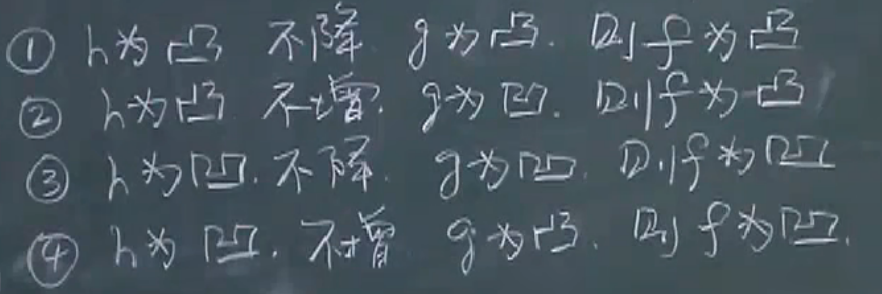 ① h为凸 不降. g为凸. 则f为凸
② h为凸 不增. g为凹. 则f为凸
③ h为凹. 不降. g为凹. 则f为凹
④ h为凹. 不增 g为凸. 则f为凹.